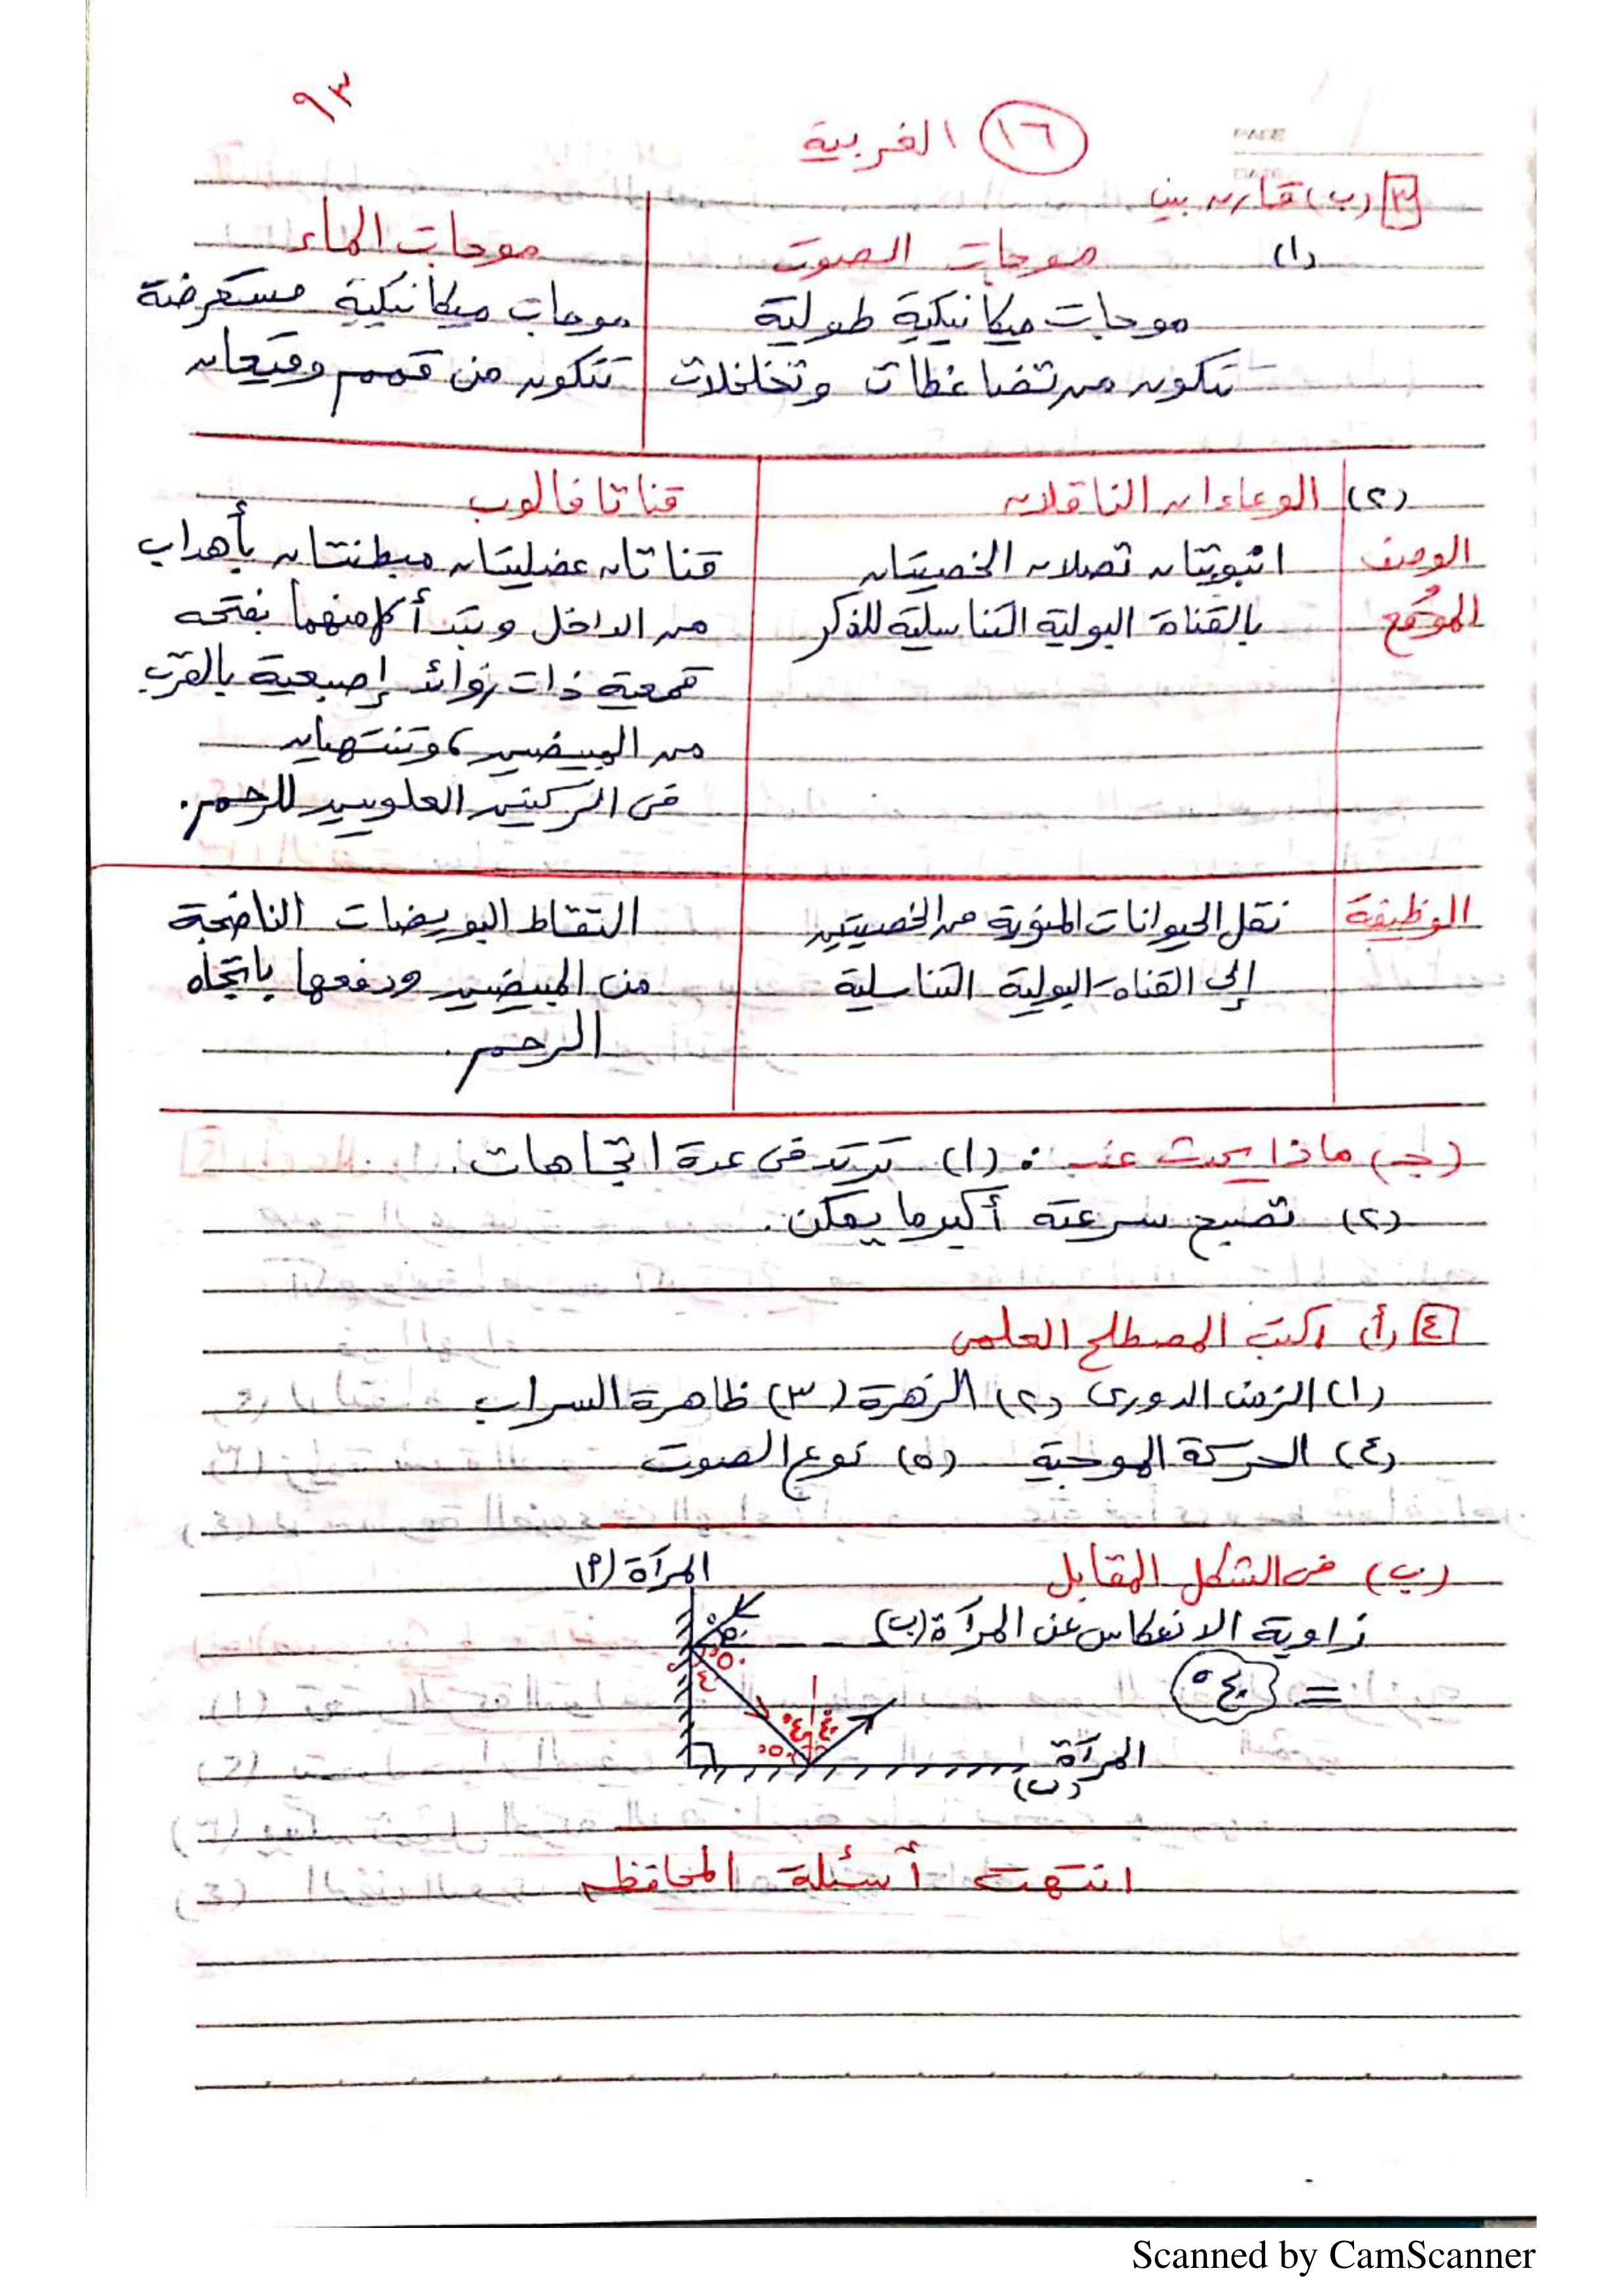 ٩٣
١٦ الغربية
PAGE
٣ (ب) قارن بين
(١) موجات الصوت
موجات الماء
موجات ميكانيكية طولية
موجات ميكانيكية مستعرضة
تتكون من تضاغطات وتخلخلات
تتكون من قمم وقيعان
(٢) الوعاءان الناقلان
قناتا فالوب
الوصف
انبوبتان تصلان الخصيتان
قناتان عضليتان مبطنتان بأهداب
الموقع
بالقناة البولية التناسلية للذكر
من الداخل وتبدأ كل منهما بفتحه
قمعية ذات زوائد إصبعية بالقرب
من المبيضين، وتنتهيان
فى الركنين العلويين للرحم.
الوظيفة
نقل الحيوانات المنوية من الخصيتين
التقاط البويضات الناضجة
إلى القناه البولية التناسلية
من المبيضين ودفعها باتجاه
الرحم.
(جـ) ماذا يحدث عند: (١) ترتد فى عدة اتجاهات.
(٢) تصبح سرعته أكبر ما يمكن.
٤ أ) اكتب المصطلح العلمى
(١) الزمن الدورى (٢) الزهرة (٣) ظاهرة السراب
(٤) الحركة الموجية (٥) نوع الصوت
(ب) فى الشكل المقابل
المرآة (٩)
زاوية الانعكاس عن المرآة (ب)
= ٤٠°
٥٠
٥٠
٤٠
٤٠
٤٠
٥٠
المرآة
(ب)
انتهت أسئلة المحافظه
Scanned by CamScanner